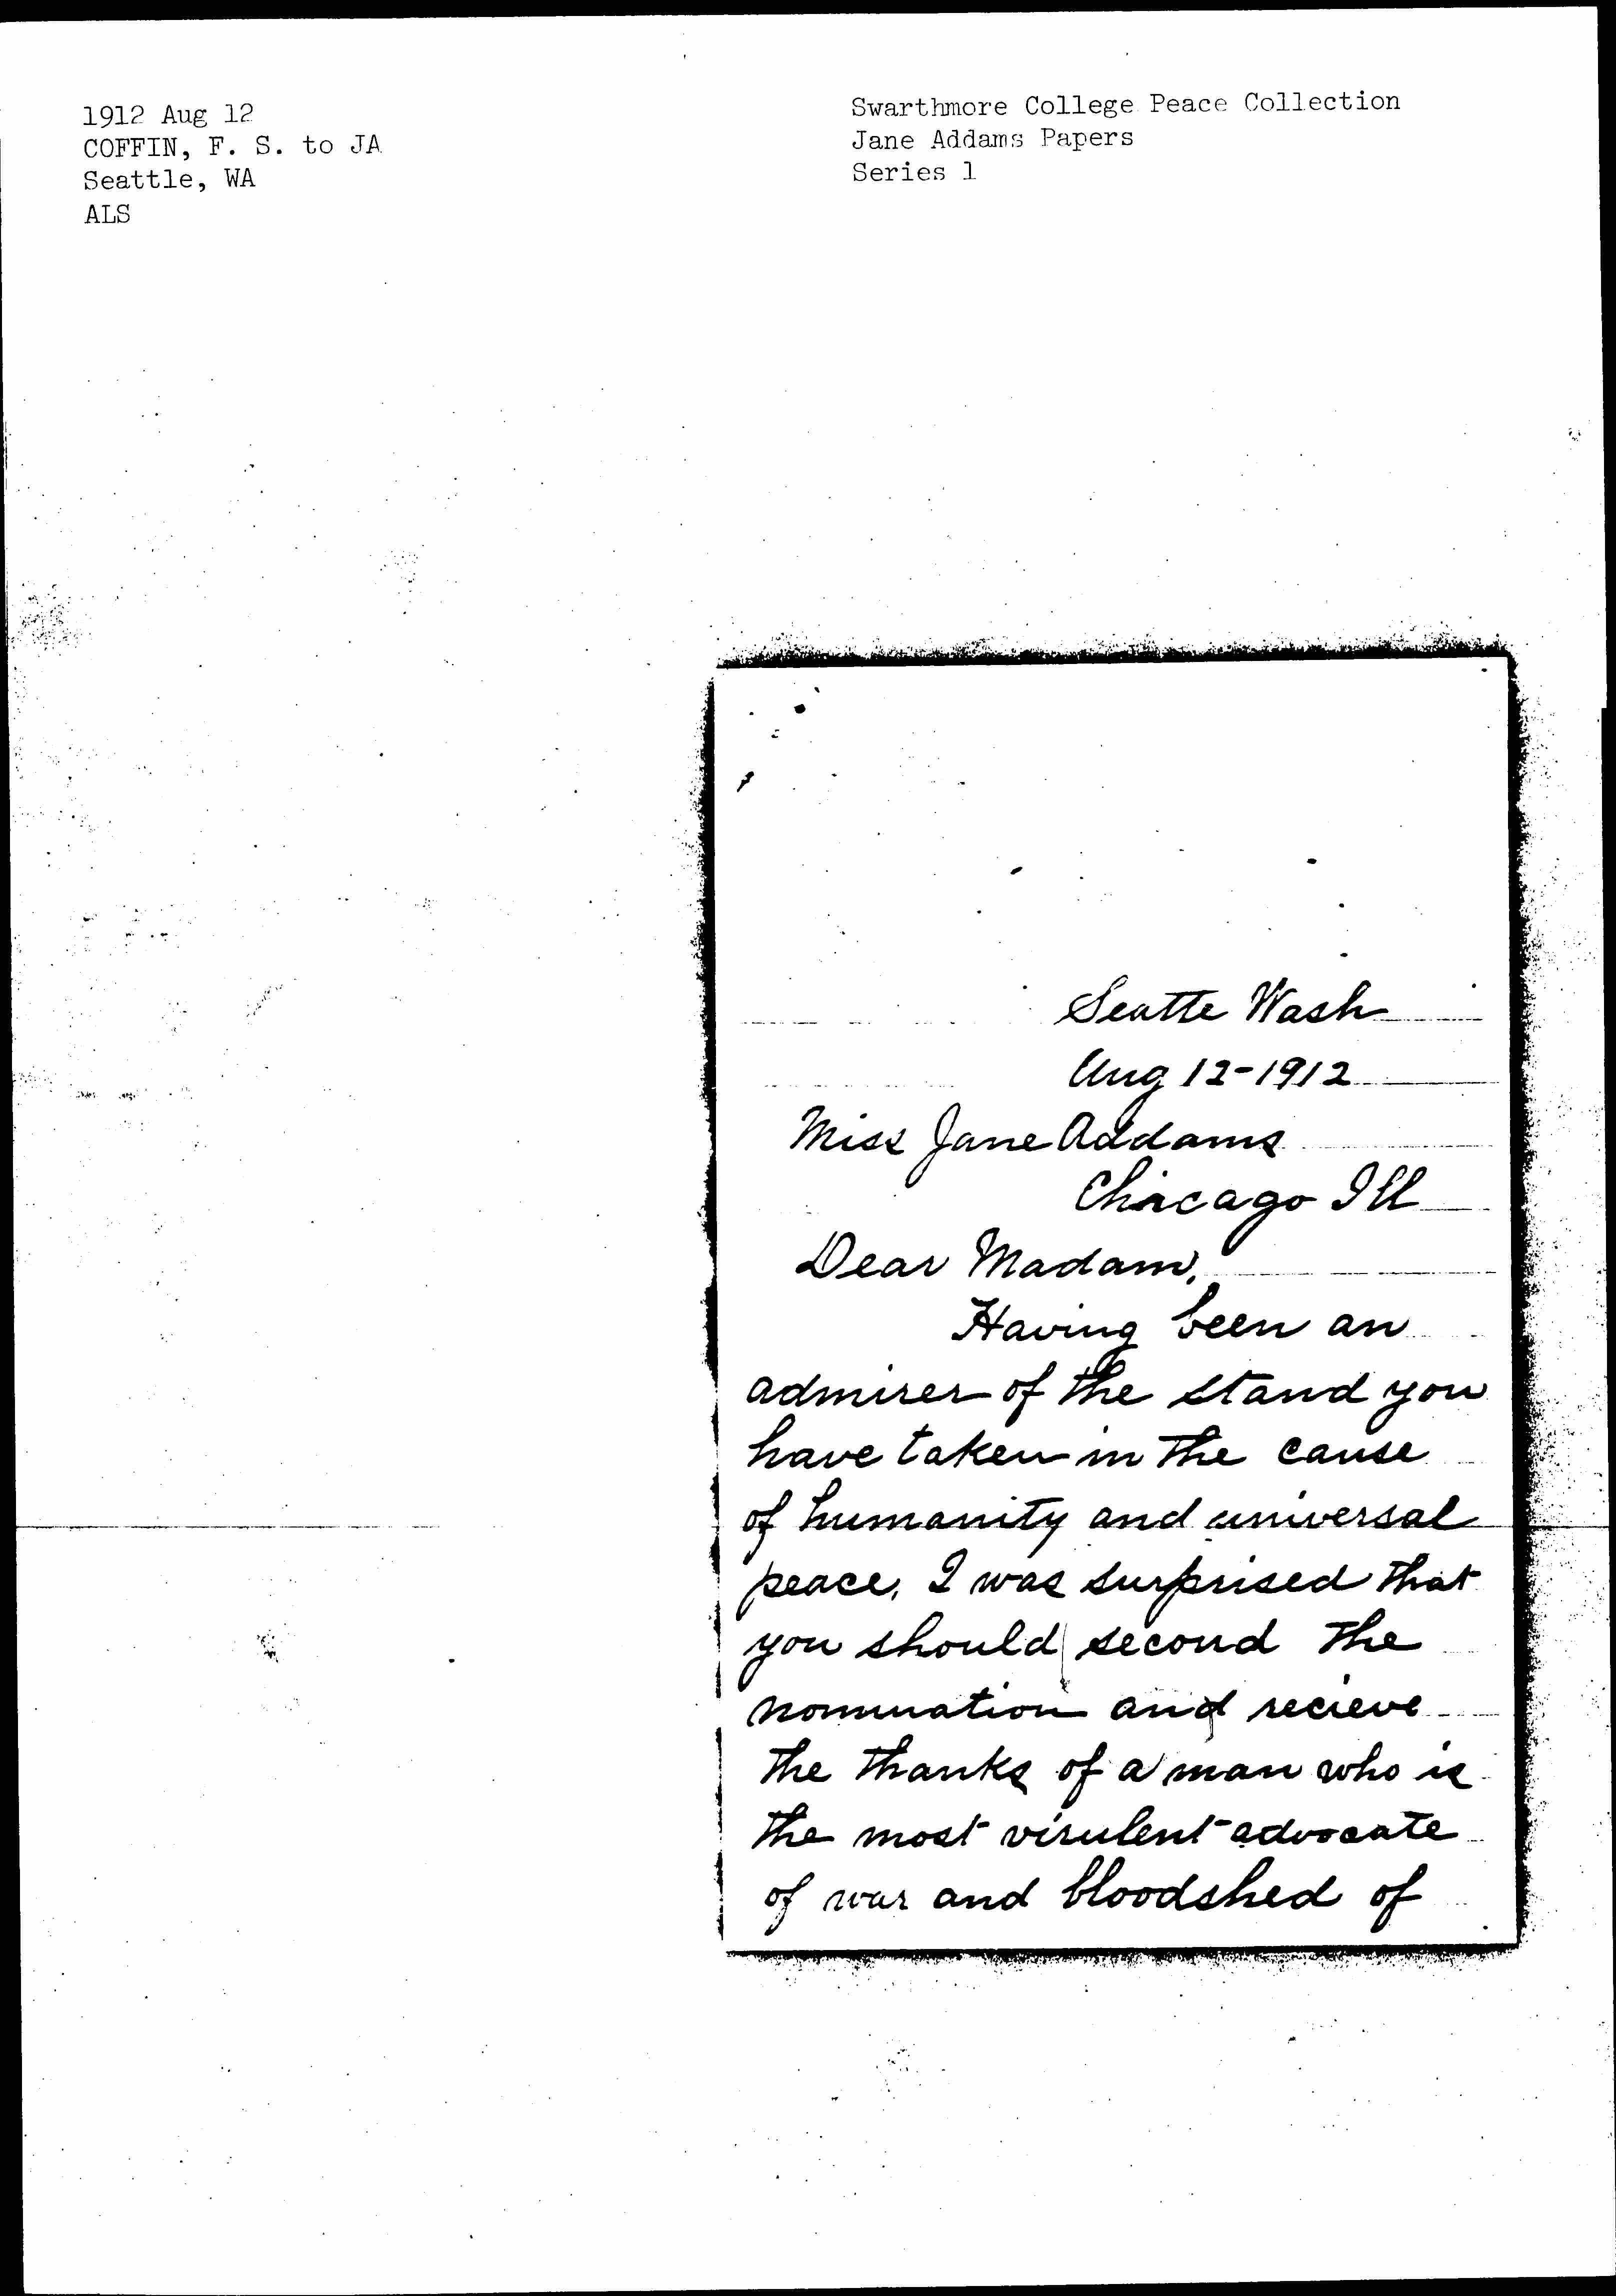 1912 Aug 12
COFFIN, F. S. to JA
Seattle, WA
ALS
Swarthmore College Peace Collection
Jane Addams Papers
Series 1
Seatte Wash
Aug 12-1912
Miss Jane Addams
Chicago Ill
Dear Madam,
Having been an
admirer of the stand you
have taken in the cause
of humanity and universal
peace, I was surprised that
you should second the
nomination and recieve
the thanks of a man who is
the most virulent advocate
of war and bloodshed of